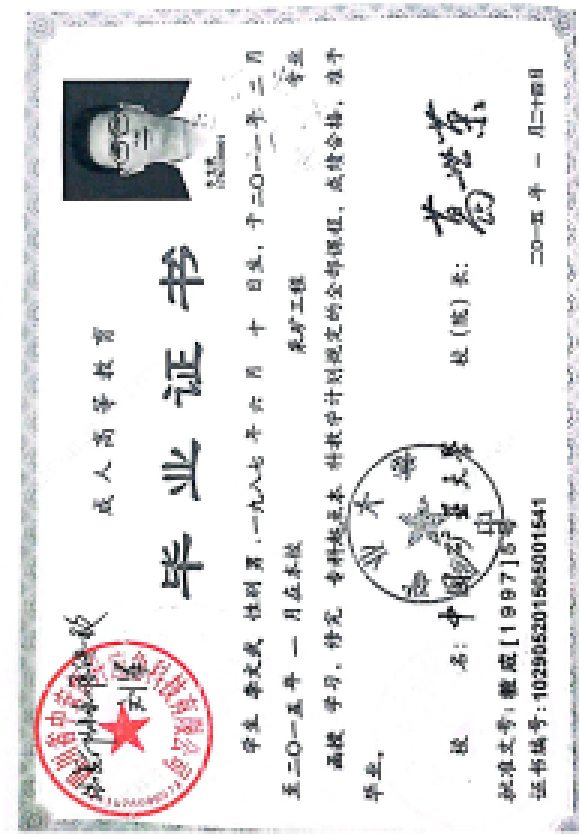 成人高等教育
毕业证书
学生 李文武 性别 男，一九八七年 六 月 十 日生，于二〇一二年 三 月
至二〇一五 年 一 月在本校 采矿工程 专业
函授 学习，修完 专科起点本 科教学计划规定的全部课程，成绩合格，准予
毕业。
校 名：中国矿业大学 校（院）长：葛世荣
批准文号：教成[1997]5号 二〇一五 年 一 月二十四日
证书编号：102905201505001541